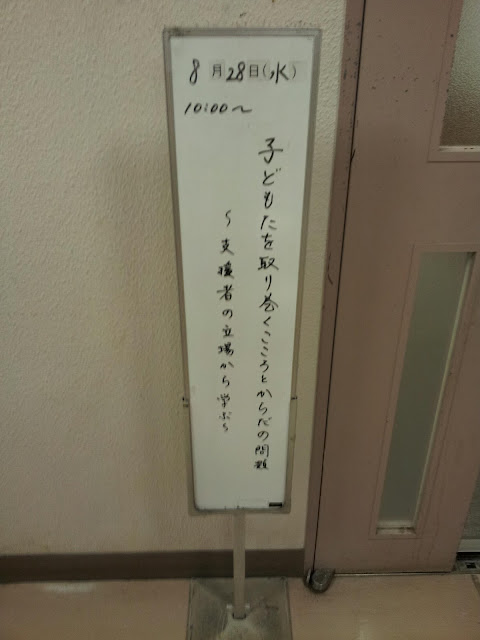 8月28日(水)
10:00～
子どもたを取り巻くこころとからだの問題
～支援者の立場から学ぶ～